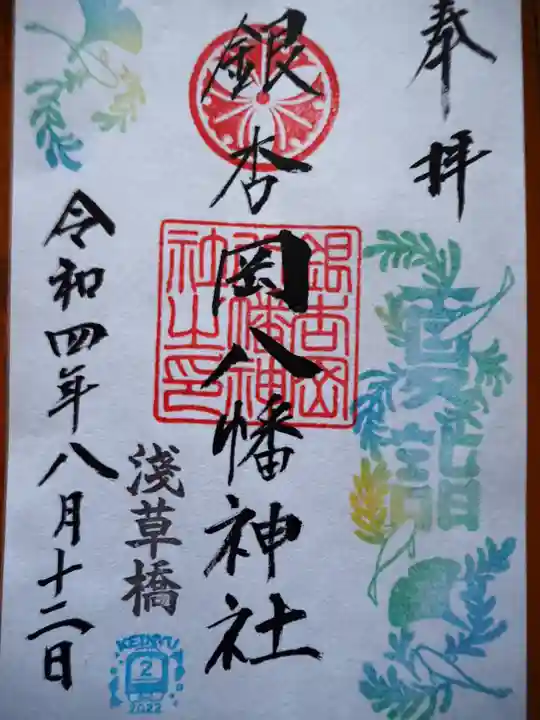 奉拝
夏詣
銀杏岡八幡神社
銀杏岡
八幡神
社之印
淺草橋
KEIKYU
2
2022
令和四年八月十二日